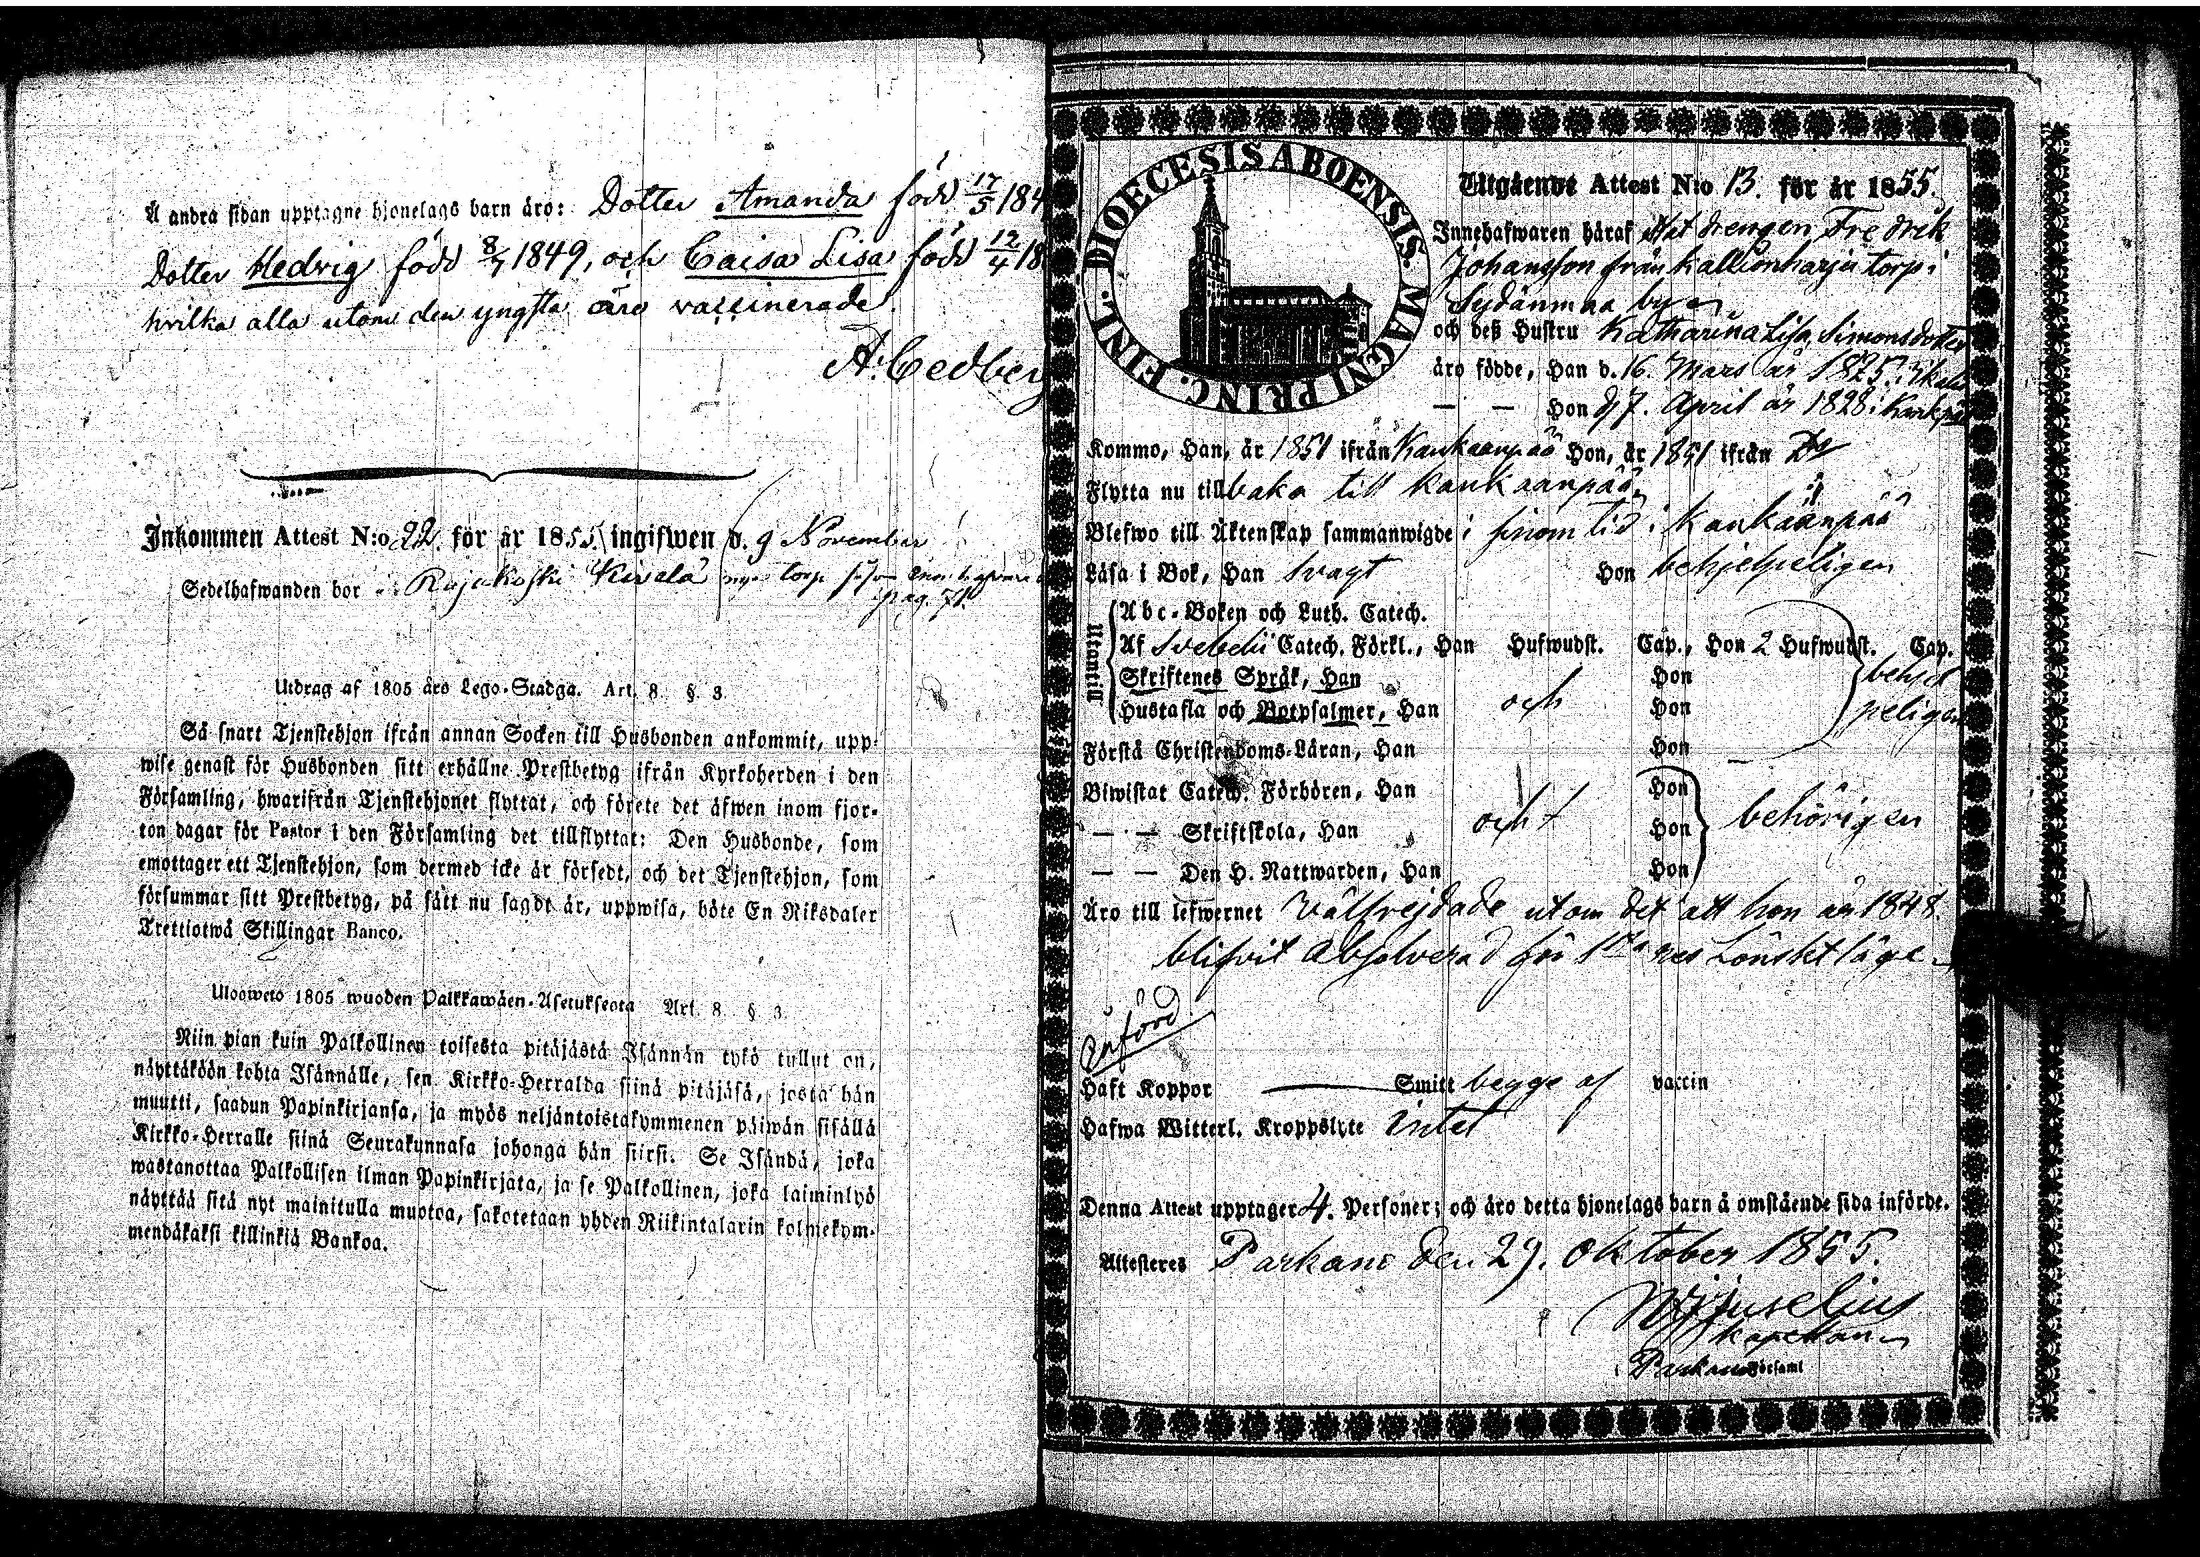 Å andra sidan upptagne hjonelags barn äro: Dotter Amanda född 17/5 184
Dotter Hedvig född 8/7 1849, och Caisa Lisa född 12/4 18
hvilka alla utom den yngsta äro vaccinerade.
A. Cedberg
Inkommen Attest N:o 22. för år 1855. ingifwen d. 9 November
Sedelhafwanden bor Rajakoski Kivelä torp
pag. 71.
Utdrag af 1805 års Lego-Stadga. Art. 8. § 3.
Så snart Tjenstehjon ifrån annan Socken till Husbonden ankommit, upp-
wise genast för Husbonden sitt erhållne Prestbetyg ifrån Kyrkoherden i den
Församling, hwarifrån Tjenstehjonet flyttat, och förete det äfwen inom fjor-
ton dagar för Pastor i den Församling det tillflyttat: Den Husbonde, som
emottager ett Tjenstehjon, som dermed icke är försedt, och det Tjenstehjon, som
försummar sitt Prestbetyg, på sätt nu sagdt är, uppwisa, böte En Riksdaler
Trettiotwå Skillingar Banco.
Ulosweto 1805 wuoden Palkkawäen-Asetuksesta Art. 8. § 3.
Niin pian kuin Palkollinen toisesta pitäjästä Isännän tykö tullut on,
näyttäköön kohta Isännälle, sen Kirkko-Herralda siinä pitäjäsä, josta hän
muutti, saadun Papinkirjansa, ja myös neljäntoistakymmenen päiwän sisällä
Kirkko-Herralle siinä Seurakunnasa johonga hän siirsi. Se Isändä, joka
wastanottaa Palkollisen ilman Papinkirjata, ja se Palkollinen, joka laiminlyö
näyttää sitä nyt mainitulla muotoa, sakotetaan yhden Riikintalarin kolmekym-
mendäkaksi killinkiä Bankoa.
DIOECESIS ABOENSIS. MAGNI PRINC. FINL.
Utgående Attest N:o 13. för år 1855.
Innehafwaren häraf drengen Fredrik
Johansson från Kallionharju torp i
Sydänmaa by
och deß Hustru Katharina Lisa Simonsdotter
äro födde, Han d. 16. Mars år 1825.
— — Hon d. 7. April år 1828 i
Kommo, Han, år 1851 ifrån Kankaanpää Hon, år 1851 ifrån Do
Flytta nu tillbaka till Kankaanpää
Blefwo till Äktenskap sammanwigde i sinom tid i Kankaanpää
Läsa i Bok, Han svagt Hon behjelpeligen
Utantill
Abc-Boken och Luth. Catech.
Af Svebelii Catech. Förkl., Han Hufwudst. Cap., Hon 2 Hufwudst. Cap.
Skriftenes Språk, Han Hon behjel
Hustafla och Botpsalmer, Han och Hon peligen
Förstå Christendoms-Läran, Han Hon
Biwistat Catech. Förhören, Han Hon
— — Skriftskola, Han och Hon behörigen
— — Den H. Nattwarden, Han Hon
Äro till lefwernet välfrejdade utom det att hon år 1848.
blifvit absolverad för 1sta resa Lönskt läge
Införd
Haft Koppor Smitt begge af vaccin
Hafwa Witterl. Kroppslyte Intet
Denna Attest upptager 4. Personer; och äro detta hjonelags barn å omstående sida införde.
Attesteres Parkano den 29. Oktober 1855.
Juselius
Kapellan
Parkano Församl